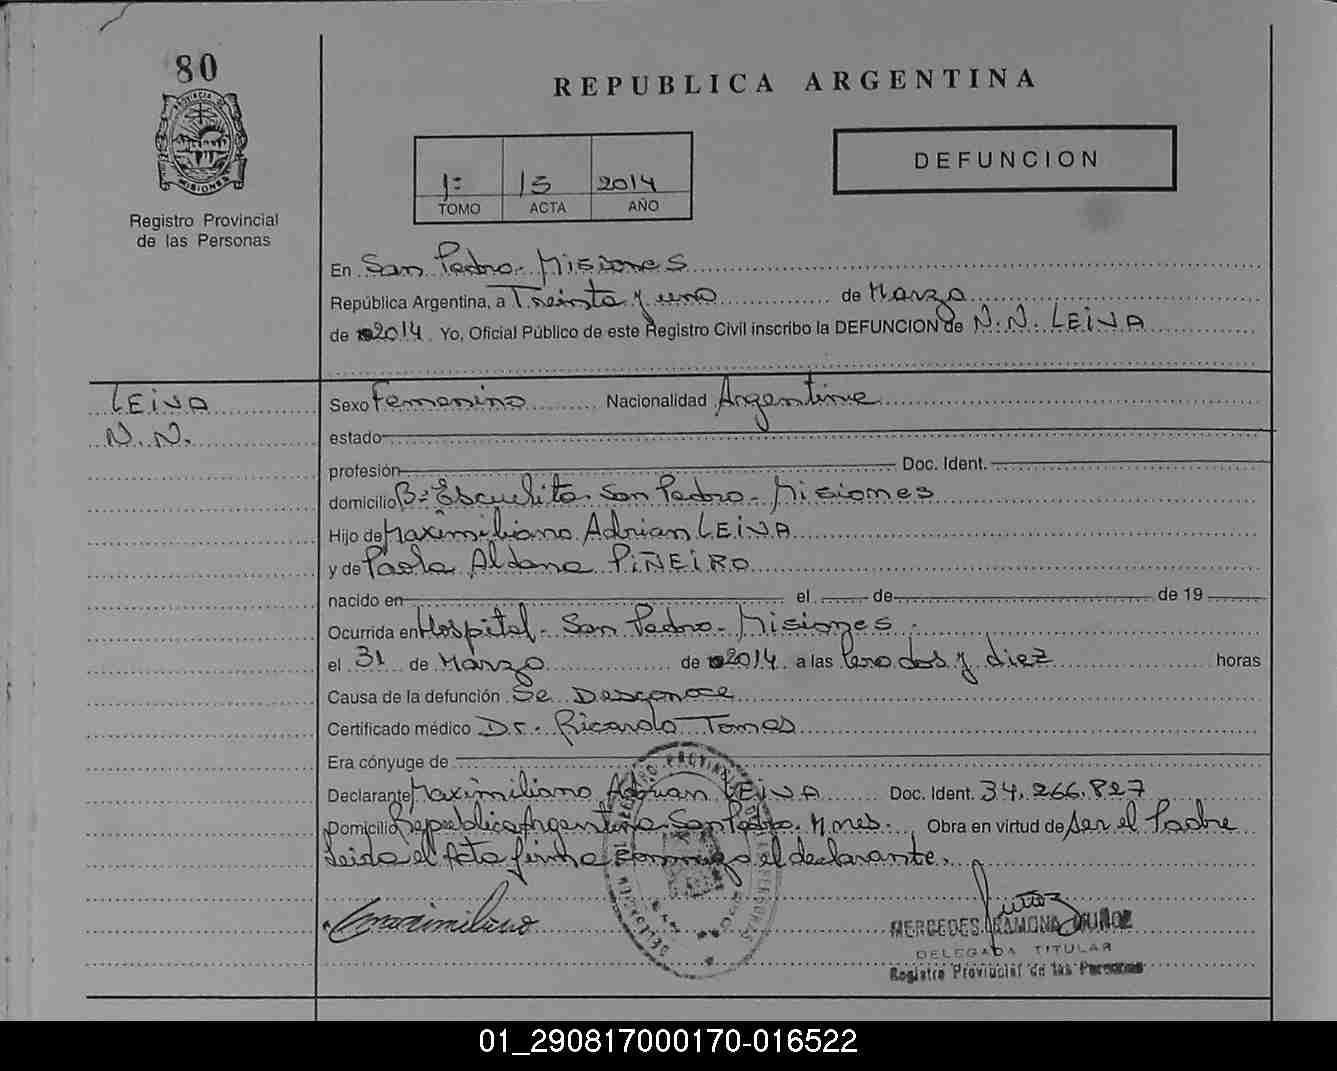 80
PROVINCIA DE
MISIONES
Registro Provincial
de las Personas
REPUBLICA ARGENTINA
1= 15 2014
TOMO ACTA AÑO
DEFUNCION
En San Pedro - Misiones
República Argentina, a Treinta y uno de Marzo
de 2014 Yo, Oficial Público de este Registro Civil inscribo la DEFUNCION de N.N. LEIVA
LEIVA
N.N.
Sexo Femenino Nacionalidad Argentina
estado
profesión Doc. Ident.
domicilio B= Escuelita San Pedro - Misiones
Hijo de Maximiliano Adrian LEIVA
y de Paola Aldana PIÑEIRO
nacido en el de de 19
Ocurrida en Hospital - San Pedro - Misiones
el 31 de Marzo de 2014 a las cero dos y diez horas
Causa de la defunción Se Desconoce
Certificado médico Dr. Ricardo Tomas
Era cónyuge de
Declarante Maximiliano Adrian LEIVA Doc. Ident. 34.266.827
Domicilio Republica Argentina - San Pedro - Mnes. Obra en virtud de Ser el Padre
Leida el Acta firma conmigo el declarante.
Maximiliano
Muñoz
MERCEDES RAMONA MUÑOZ
DELEGADA TITULAR
Registro Provincial de las Personas
01_290817000170-016522